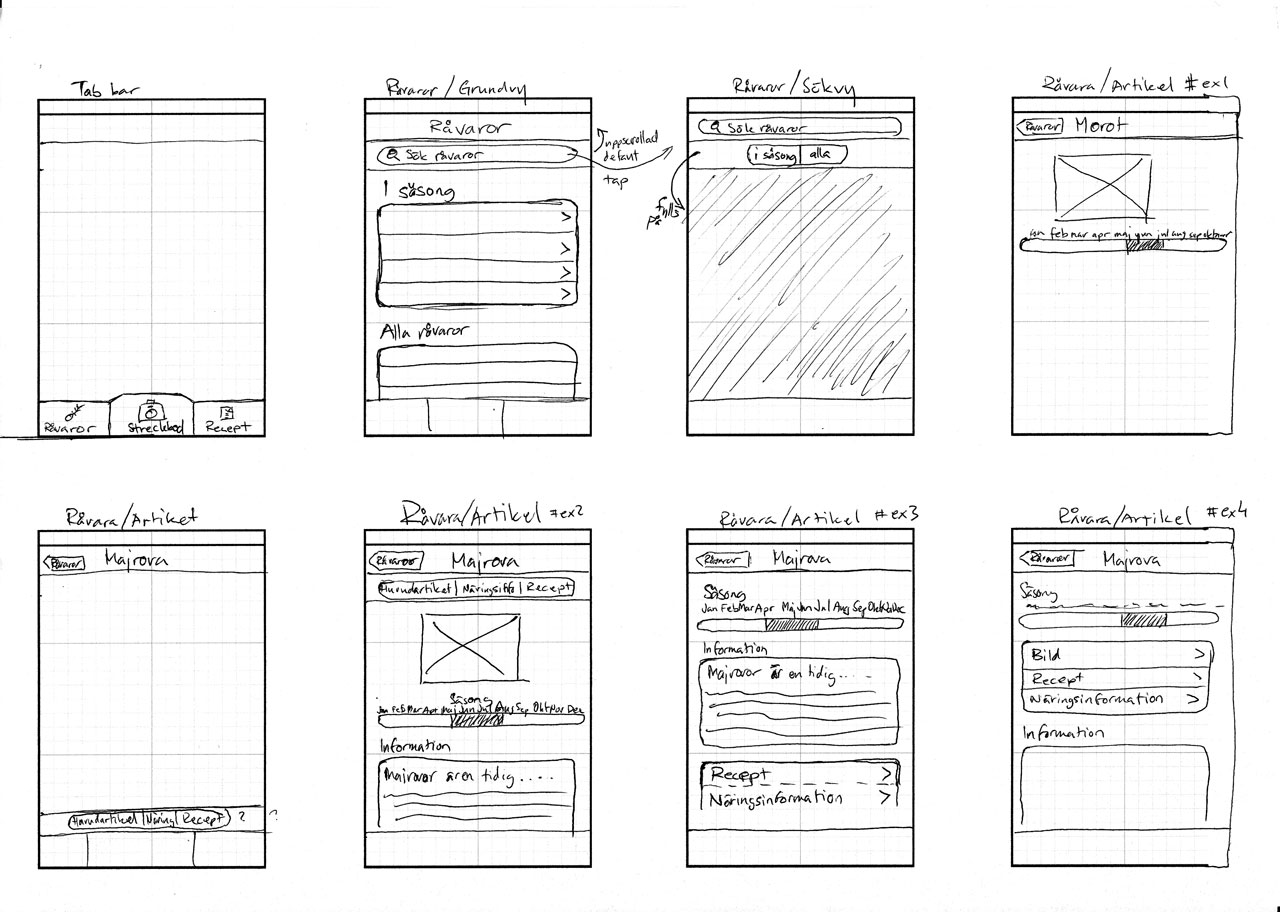 Tab bar
Råvaror
Streckkod
Recept
Råvaror/Grundvy
Råvaror
Sök råvaror
I säsong
Alla råvaror
uppscrollad
default
tap
Råvaror/Sökvy
Sök råvaror
i säsong alla
fylls
på
Råvara/Artikel #ex1
Råvaror Morot
jan feb mar apr maj jun jul aug sep okt nov
Råvara/Artikel
Råvaror Majrova
Huvudartikel Näring Recept ? ?
Råvara/Artikel #ex2
Råvaror Majrova
Huvudartikel Näringsinfo Recept
Säsong
Jan Feb Mar Apr Maj Jun Jul Aug Sep Okt Nov Dec
Information
Majrovor är en tidig....
Råvara/Artikel #ex3
Råvaror Majrova
Säsong
Jan Feb Mar Apr Maj Jun Jul Aug Sep Okt Nov Dec
Information
Majrovor är en tidig....
Recept
Näringsinformation
Råvara/Artikel #ex4
Råvaror Majrova
Säsong
Bild
Recept
Näringsinformation
Information